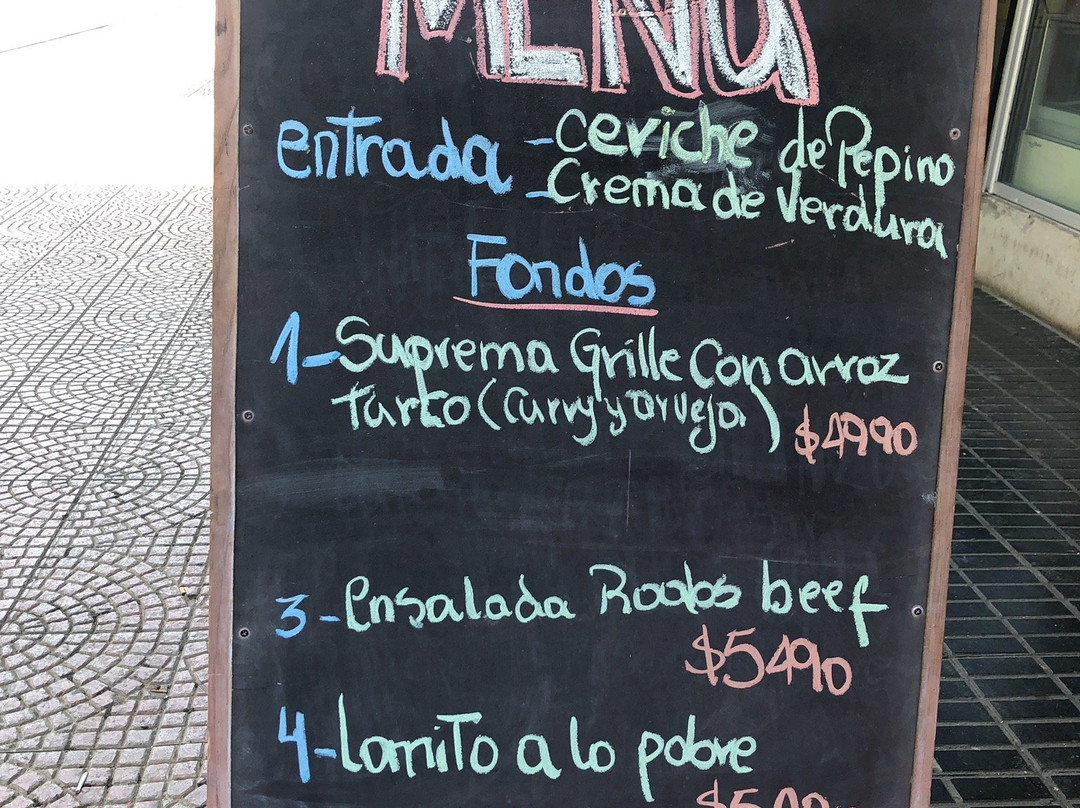 MENU
entrada - Ceviche de Pepino
- Crema de Verdura
Fondos
1- Suprema Grille Con arroz
Turco (Curry y arveja)
$4990
3- Ensalada Roabs beef
$5490
4- Lomito a lo pobre